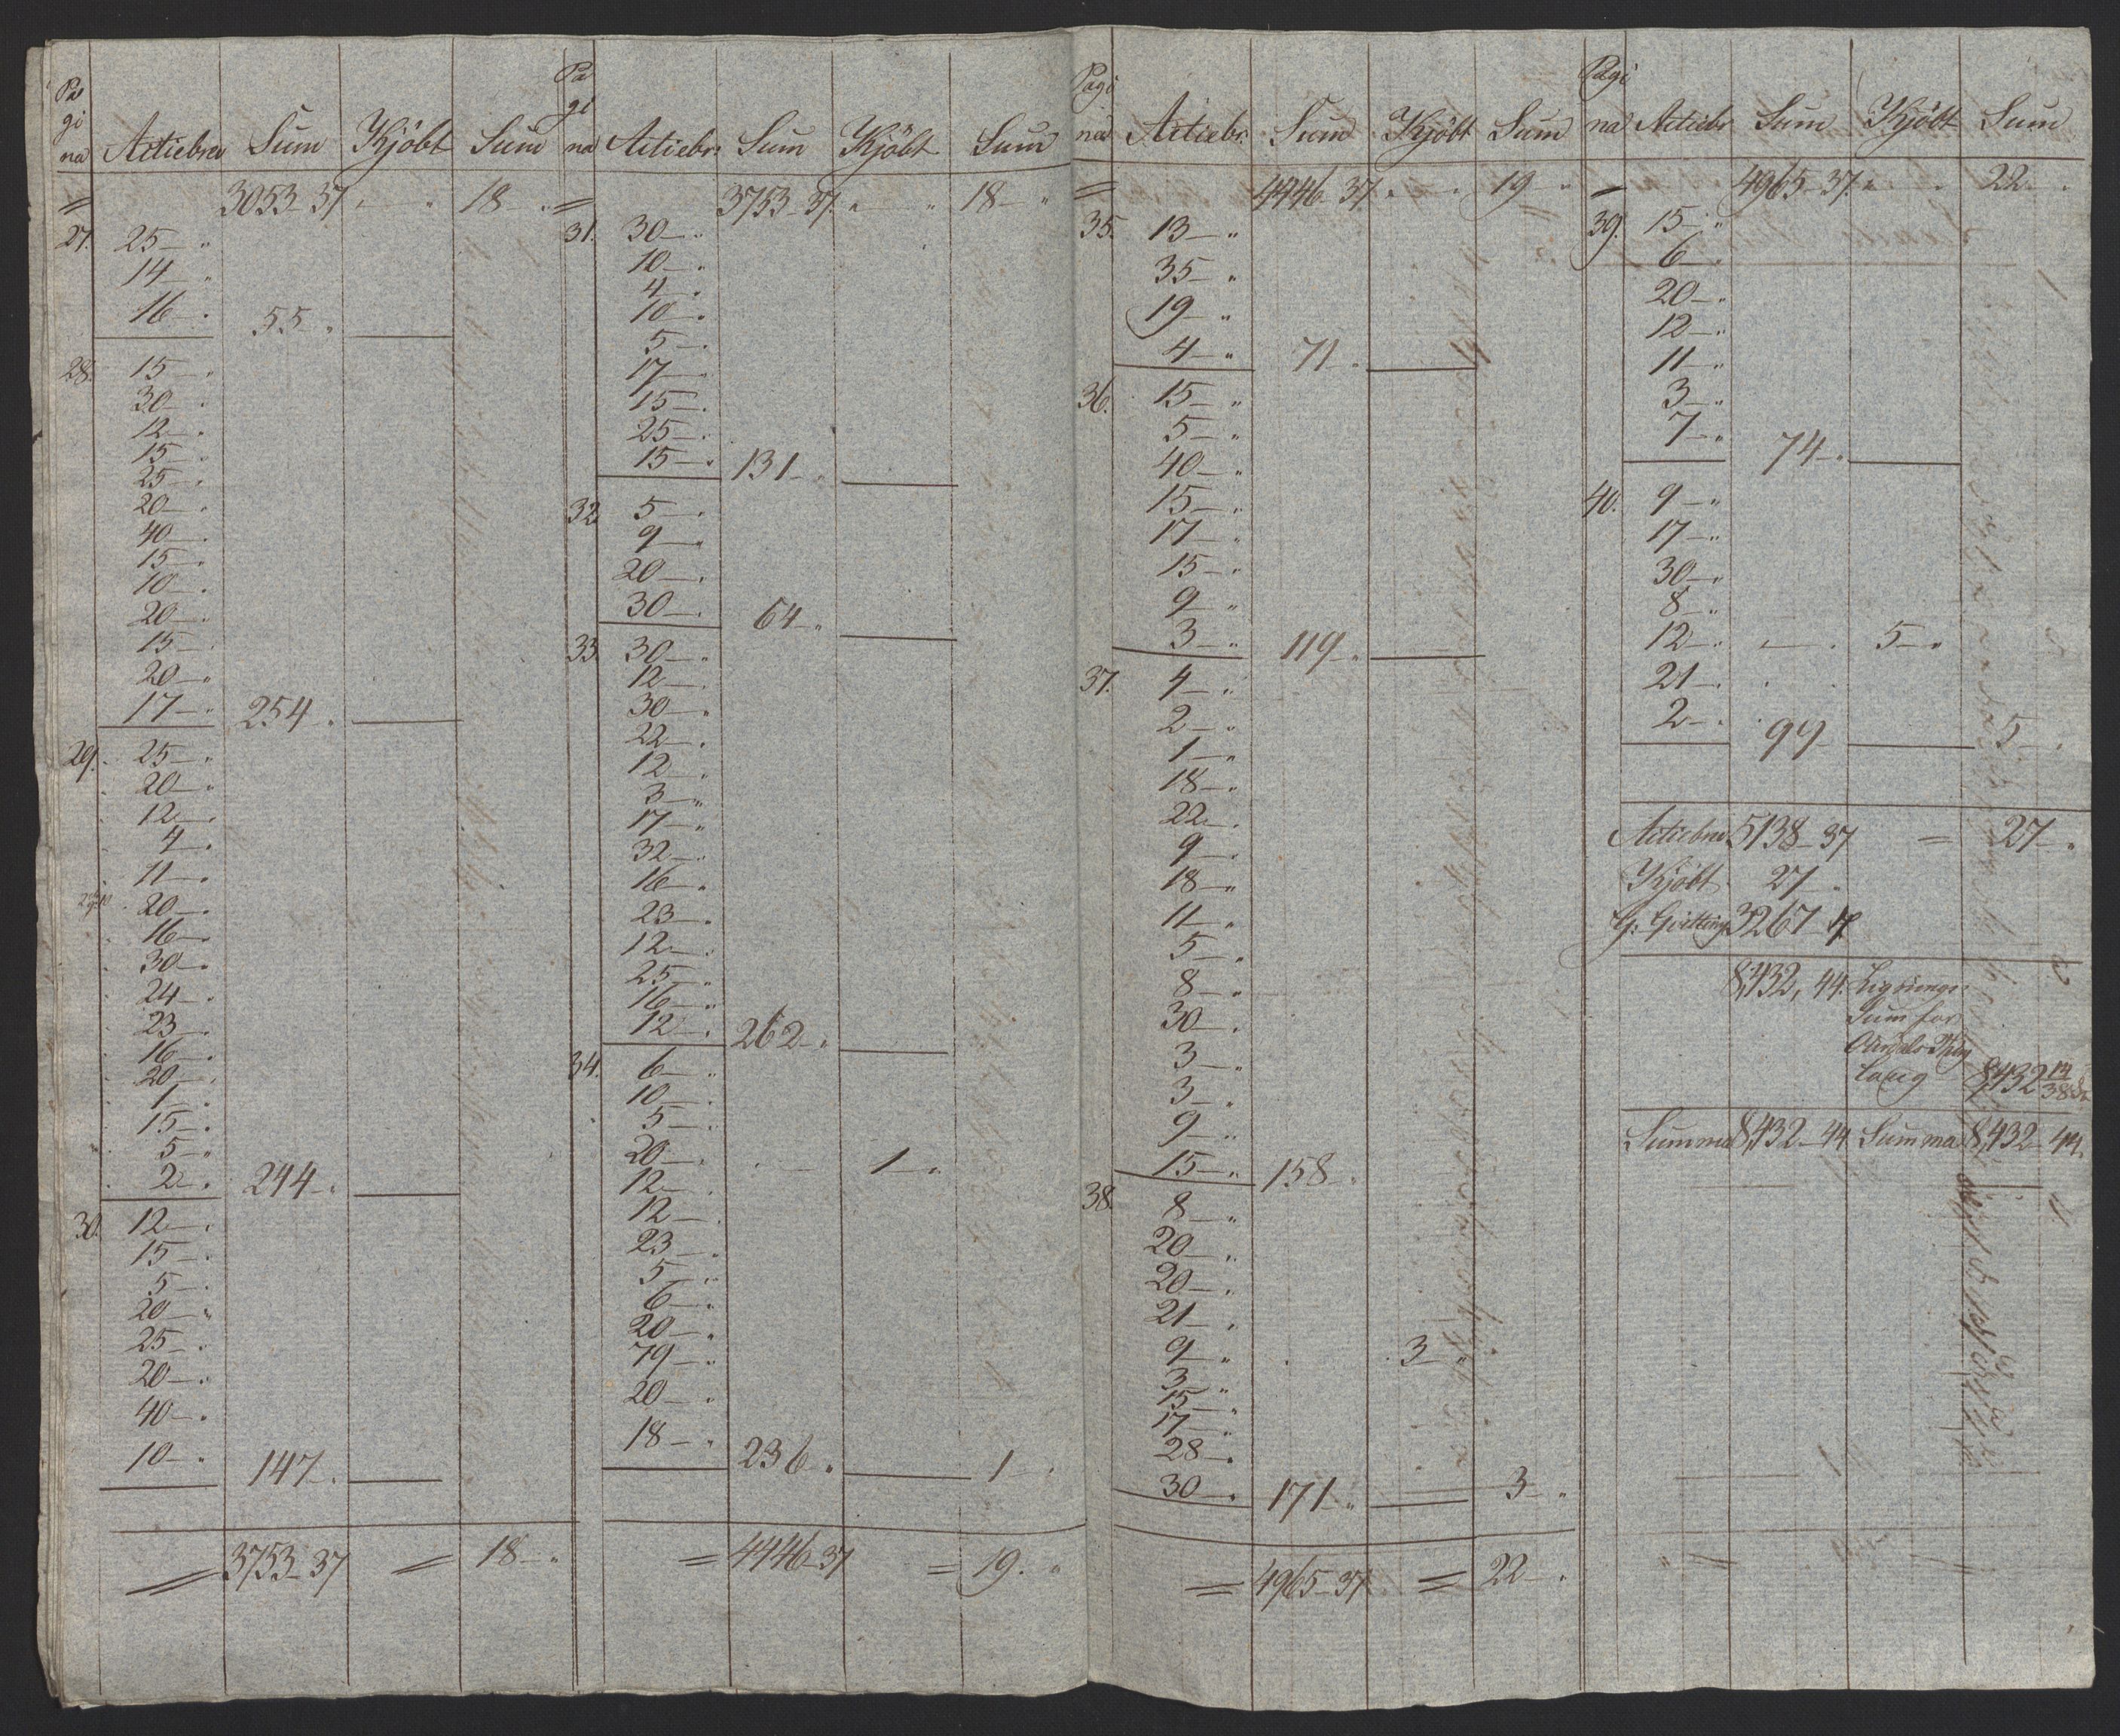 Pa
gi
na Actiebrev Sum Kjöbt Sum
= 3053-37 " " 18 "
27. 25-"
14-"
16-" 55-"
28. 15-"
30-"
12-"
15-"
25-"
20-"
40-"
15-"
10-"
20-"
15-"
20-"
17-" 254-"
29. 25-"
20-"
12-"
4-"
11-"
20-"
16-"
30-"
24-"
23-"
16-"
20-"
1-"
15-"
5-"
2-" 244-"
30. 12-"
15-"
5-"
20-"
25-"
20-"
40-"
10-" 147-"
= 3753-37 = 18-"
Pa
gi
na Actiebr: Sum Kjöbt Sum
= 3753-37. " " 18-"
31. 30-"
10-"
4-"
10-"
5-"
17-"
15-"
25-"
15-" 131-"
32. 5-"
9-"
20-"
30-" 64-"
33. 30-"
12-"
30-"
22-"
12-"
3-"
17-"
32-"
16-"
23-"
12-"
25-"
16-"
12-" 262-"
34. 6-"
10-"
5-"
20-" 1-"
12-"
12-"
23-"
5-"
6-"
20-"
79-"
20-"
18-" 236-" 1-"
= 4446-37 = 19-"
Pagi
na Actiebr: Sum Kjöbt Sum
= 4446-37 " " 19-"
35. 13-"
35-"
19-"
4-" 71-"
36. 15-"
5-"
40-"
15-"
17-"
15-"
9-"
3-" 119-"
37. 4-"
2-"
1-"
18-"
22-"
9-"
18-"
11-"
5-"
8-"
30-"
3-"
3-"
9-"
15-" 158-"
38. 8-"
20-"
20-"
21-"
9-" 3-"
3-"
15-"
17-"
28-"
30-" 171-" 3-"
= 4965-37 = 22-"
Pagi
na Actiebr Sum Kjöbt Sum
= 4965-37. " " 22-"
39. 15-"
6-"
20-"
12-"
11-"
3-"
7-" 74-"
40. 9-"
17-"
30-"
8-"
12-" 5-"
21-"
2-" 99- 5-"
Actiebrev 5138-37 = 27-"
Kjöbt 27-"
3267-7
8,432, 44. Lignings
Sum for
laug 8,432
Summa 8,432-44 Summa 8,432-44.